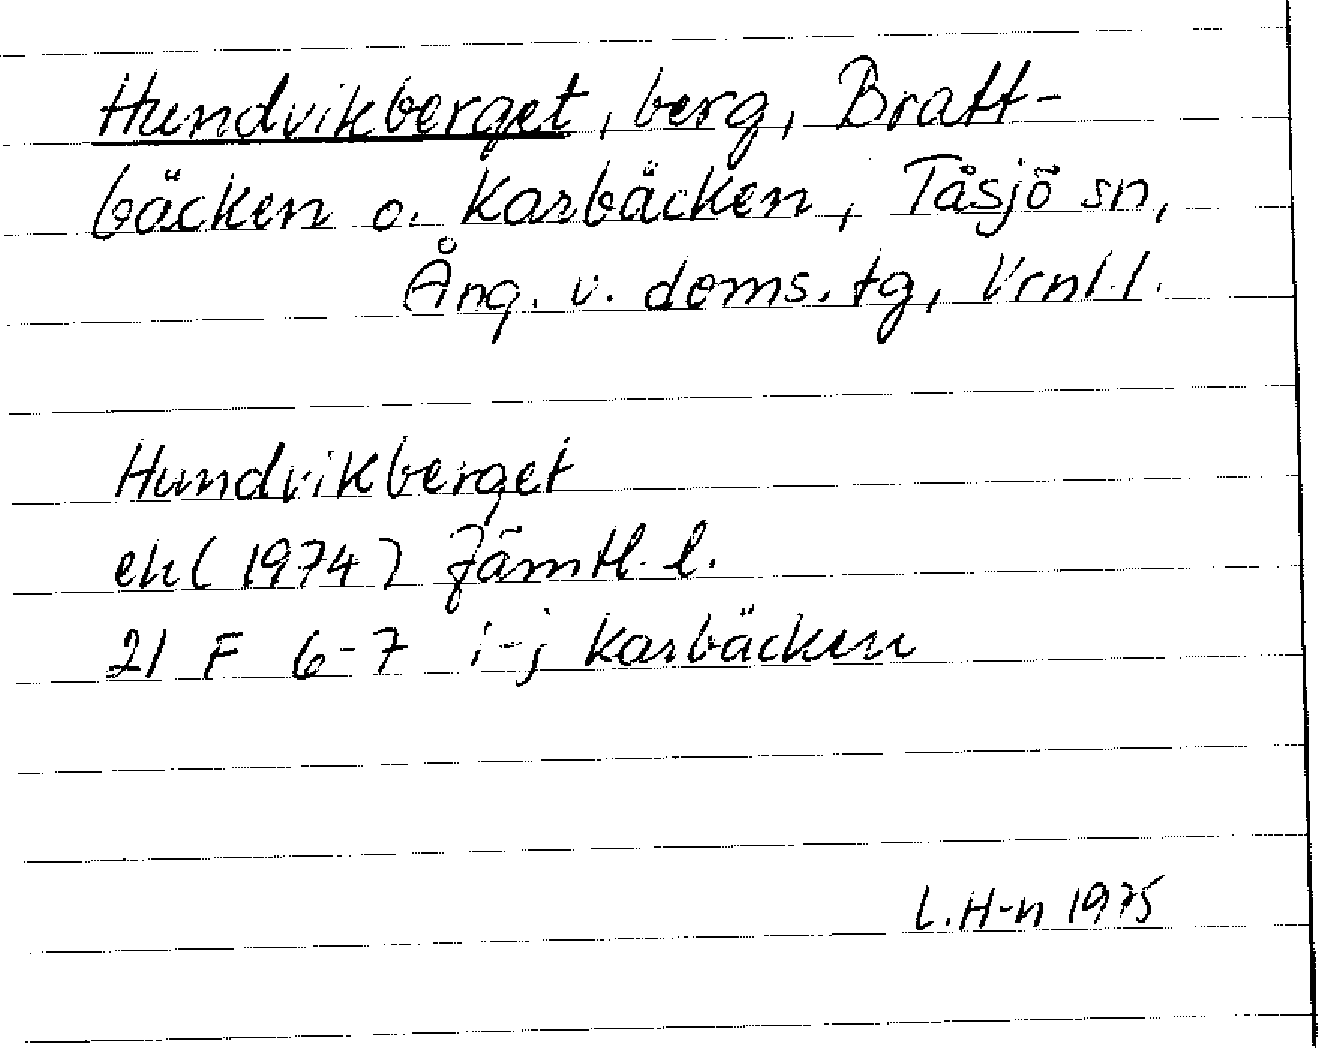 Hundvikberget, berg, Bratt-
bäcken o. Karbäcken, Tåsjö sn,
Ång. v. doms. tg, Vrnl.l.
Hundvikberget
ek (1974) Jämtl. l.
21 F 6-7 i-j Karbäcken
L.H-n 1975